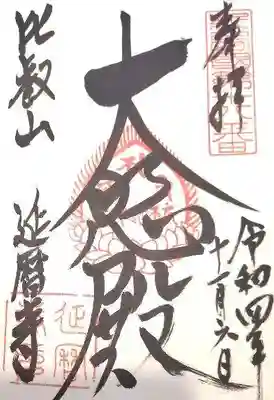 奉拝
大悲殿
比叡山
延暦寺
令和四年
十一月六日